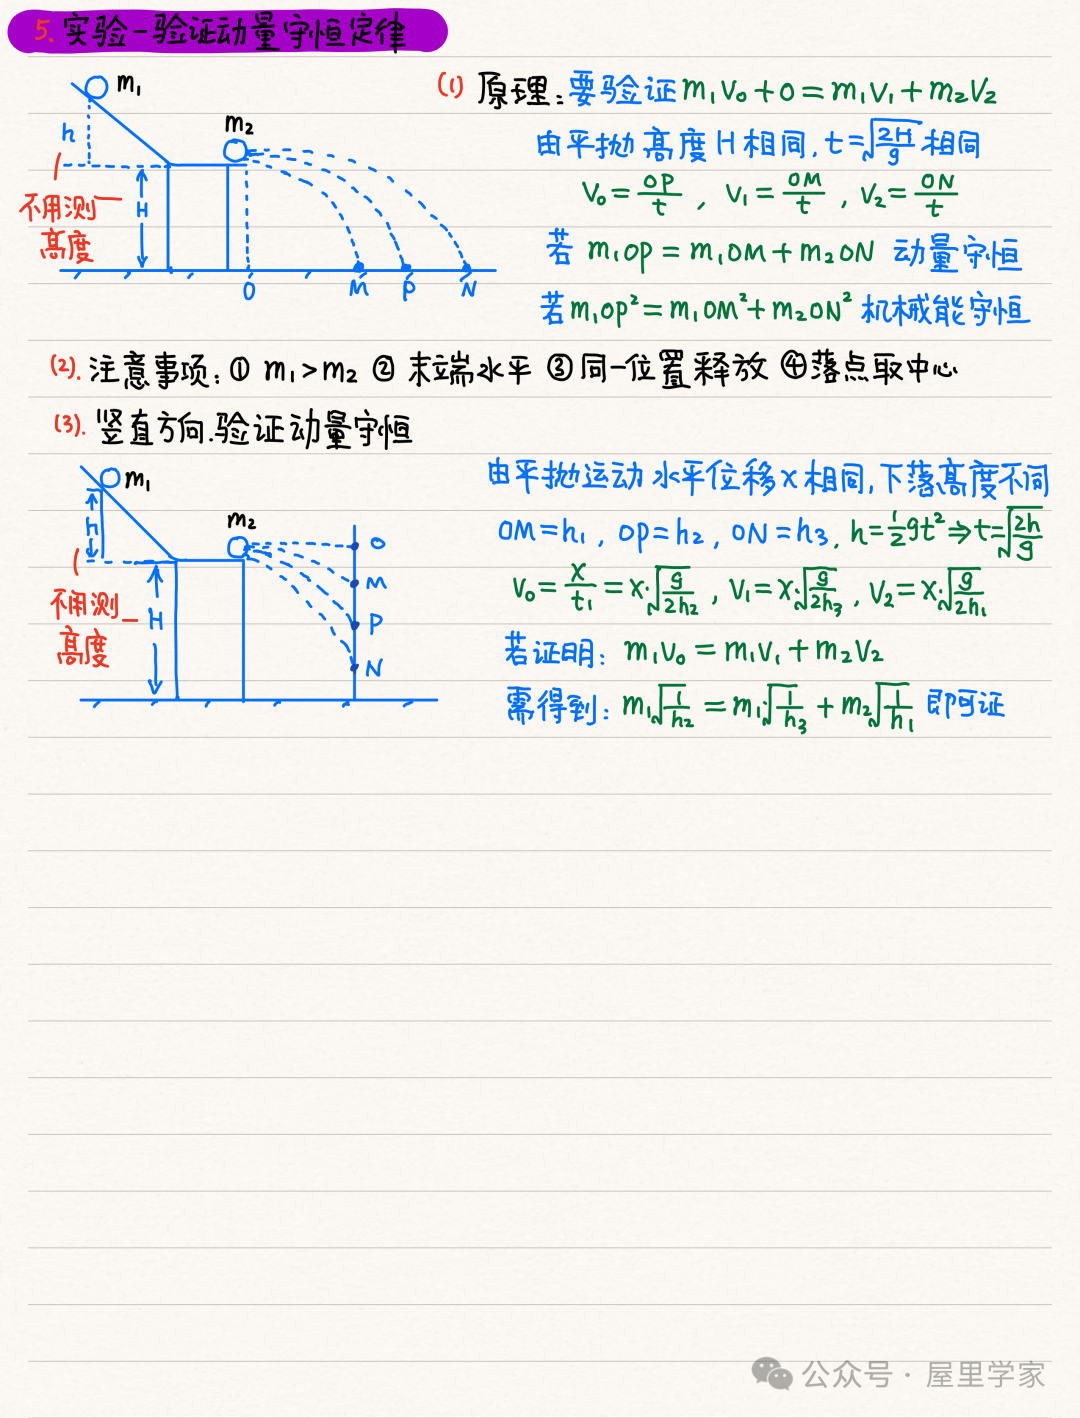 5. 实验-验证动量守恒定律
m₁
h
m₂
H
不用测
高度
O M P N
(1) 原理: 要验证 m₁v₀+0=m₁v₁+m₂v₂
由平抛高度H相同, t=√(2H/g) 相同
v₀=OP/t , v₁=OM/t , v₂=ON/t
若 m₁OP=m₁OM+m₂ON 动量守恒
若 m₁OP²=m₁OM²+m₂ON² 机械能守恒
(2). 注意事项: ① m₁>m₂ ② 末端水平 ③ 同一位置释放 ④ 落点取中心
(3). 竖直方向.验证动量守恒
m₁
h
m₂
H
不用测
高度
O
M
P
N
由平抛运动 水平位移x相同, 下落高度不同
OM=h₁ , OP=h₂ , ON=h₃ , h=½gt²⇒t=√(2h/g)
v₀=x/t₁=x·√(g/2h₂) , v₁=x·√(g/2h₃) , v₂=x·√(g/2h₁)
若证明: m₁v₀=m₁v₁+m₂v₂
需得到: m₁√(1/h₂)=m₁·√(1/h₃)+m₂√(1/h₁) 即可证
公众号 · 屋里学家